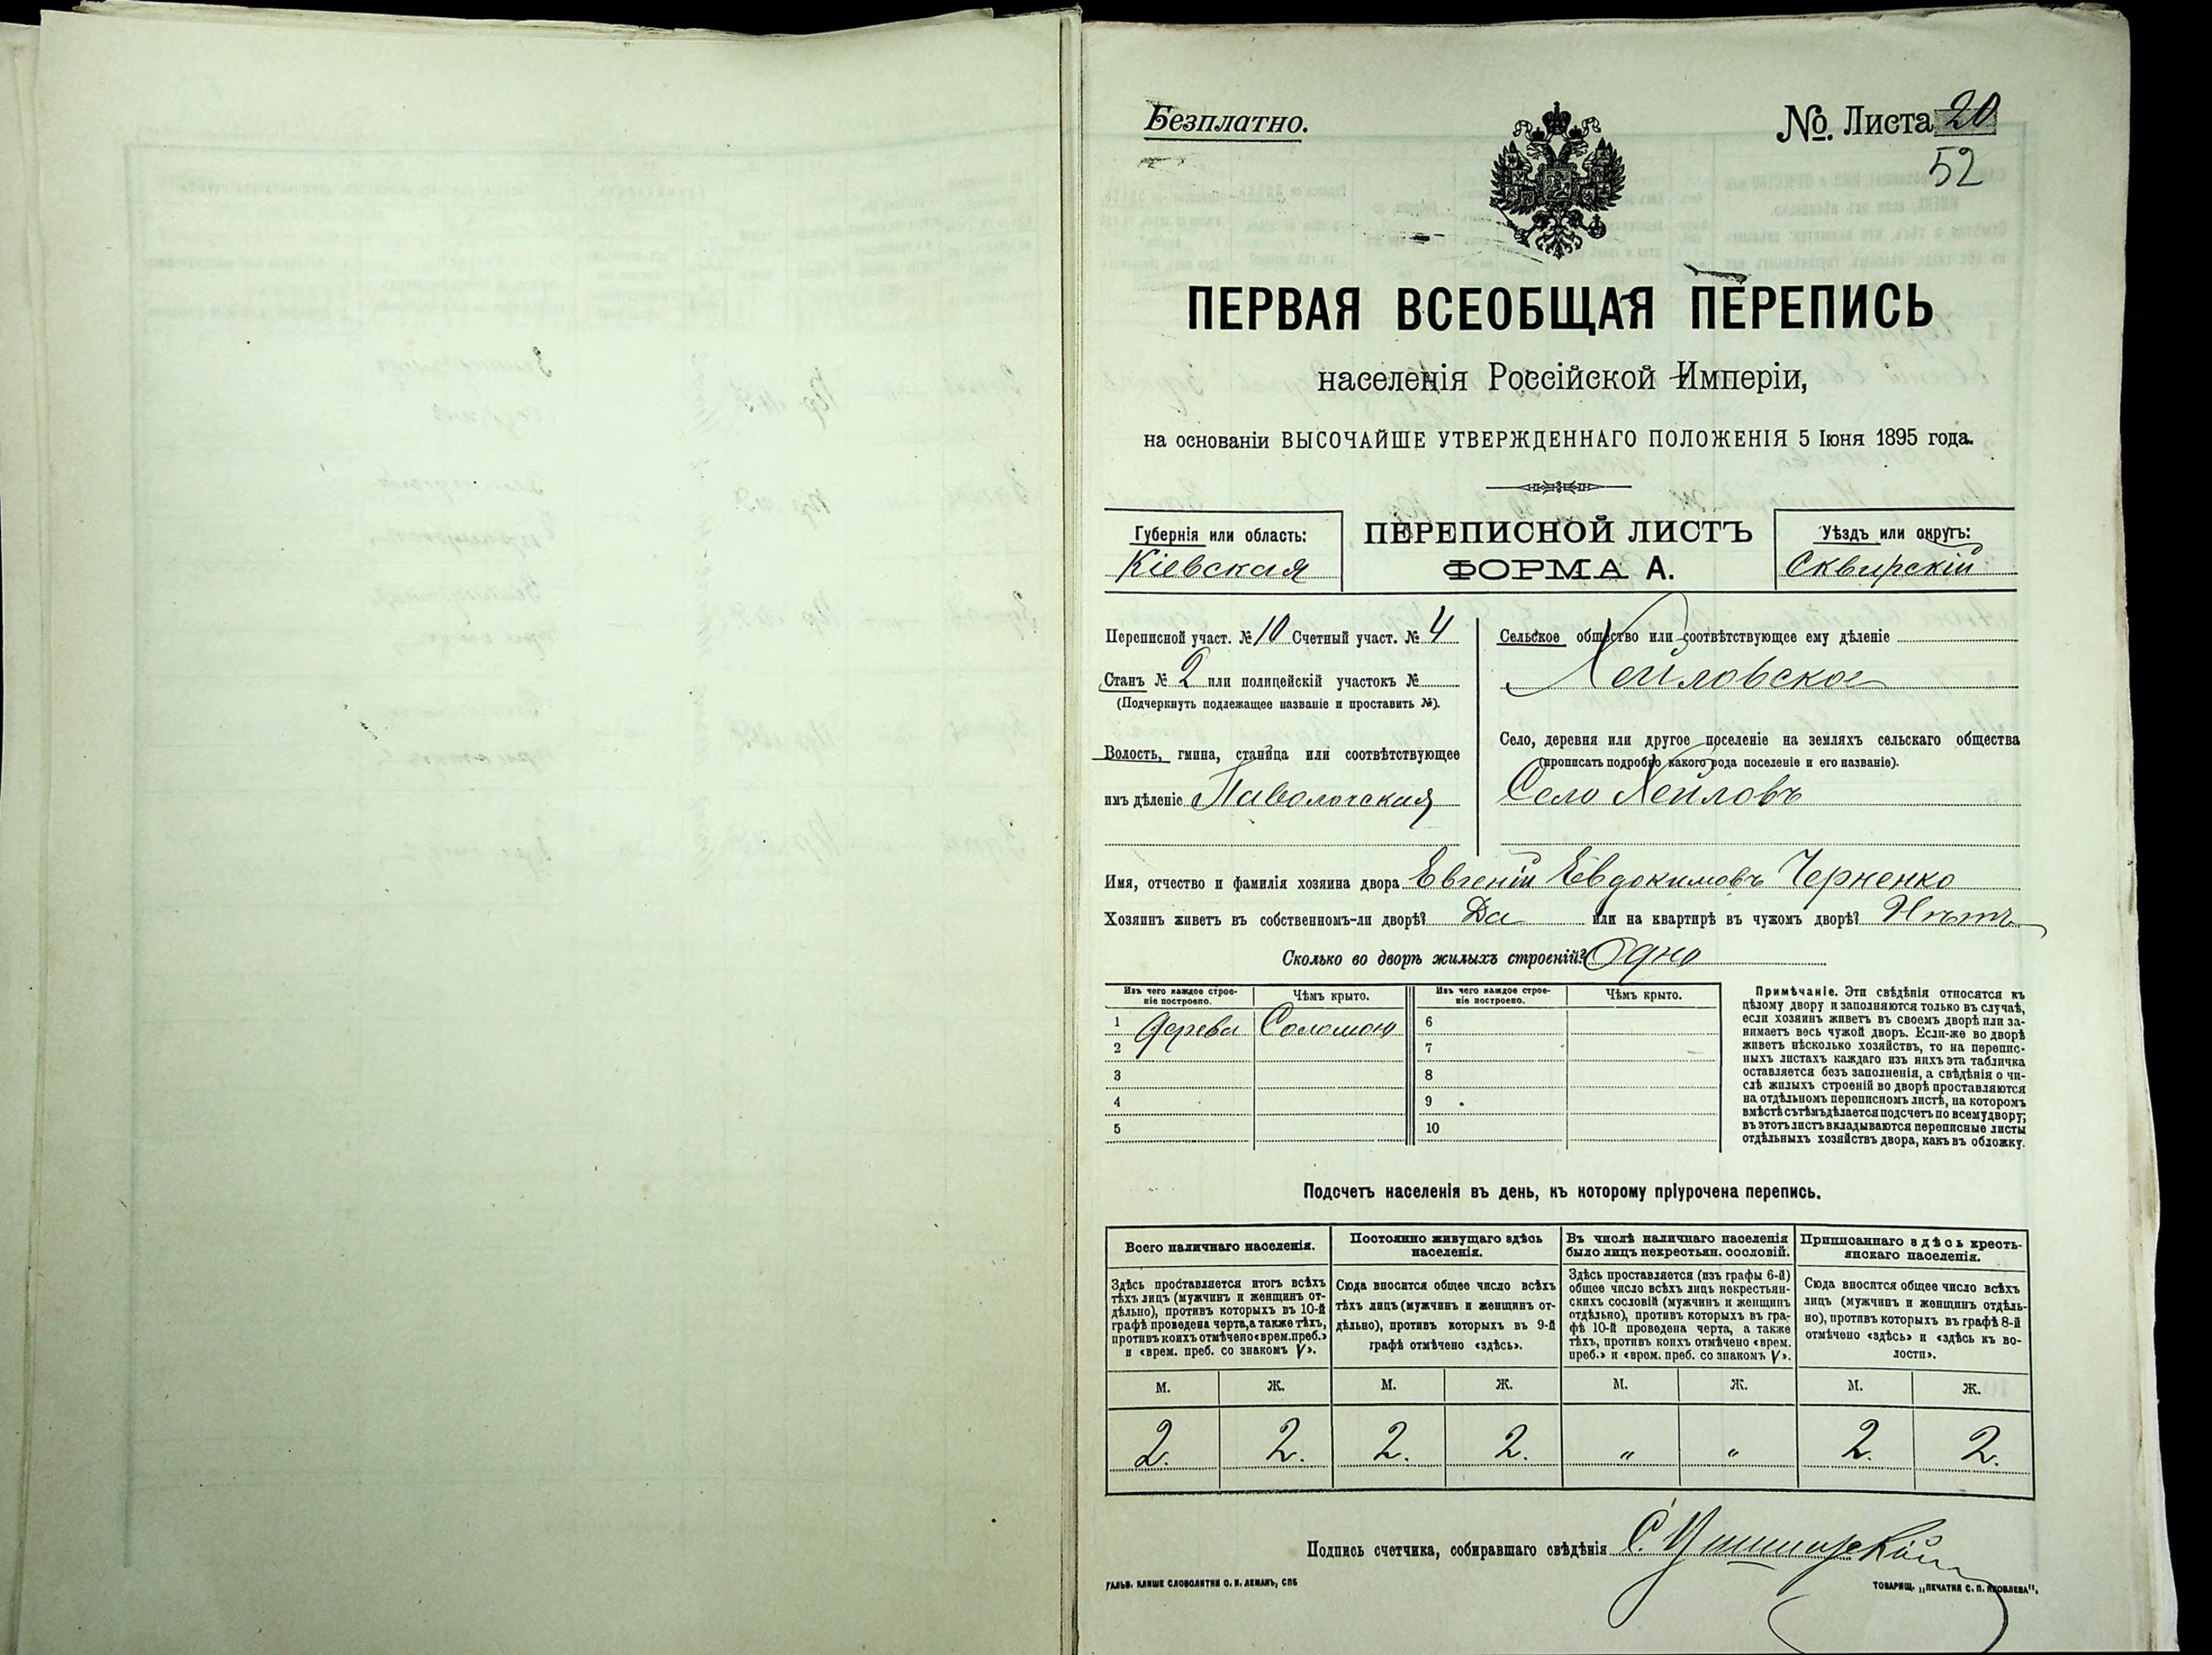 Безплатно.
№ Листа 20
52
ПЕРВАЯ ВСЕОБЩАЯ ПЕРЕПИСЬ
населенія Россійской Имперіи,
на основаніи ВЫСОЧАЙШЕ УТВЕРЖДЕННАГО ПОЛОЖЕНІЯ 5 Іюня 1895 года.
Губернія или область:
Кіевская
ПЕРЕПИСНОЙ ЛИСТЪ
ФОРМА А.
Уѣздъ или округъ:
Сквирскій
Переписной участ. № 10 Счетный участ. № 4
Станъ № 2 или полицейскій участокъ №
(Подчеркнуть подлежащее названіе и проставить №).
Волость, гмина, станица или соотвѣтствующее
имъ дѣленіе Паволочская
Сельское общество или соотвѣтствующее ему дѣленіе
Хейловское
Село, деревня или другое поселеніе на земляхъ сельскаго общества
(прописать подробно какого рода поселеніе и его названіе).
Село Хейловъ
Имя, отчество и фамилія хозяина двора Евгеній Евдокимовъ Черненко
Хозяинъ живетъ въ собственномъ-ли дворѣ? Да или на квартирѣ въ чужомъ дворѣ? Нѣтъ
Сколько во дворѣ жилыхъ строеній? Одно
Изъ чего каждое строе-
ніе построено.
Чѣмъ крыто.
Изъ чего каждое строе-
ніе построено.
Чѣмъ крыто.
1 Дерева Соломою
2
3
4
5
6
7
8
9
10
Примѣчаніе. Эти свѣдѣнія относятся къ
цѣлому двору и заполняются только въ случаѣ,
если хозяинъ живетъ въ своемъ дворѣ или за-
нимаетъ весь чужой дворъ. Если-же во дворѣ
живетъ нѣсколько хозяйствъ, то на перепис-
ныхъ листахъ каждаго изъ нихъ эта табличка
оставляется безъ заполненія, а свѣдѣнія о чи-
слѣ жилыхъ строеній во дворѣ проставляются
на отдѣльномъ переписномъ листѣ, на которомъ
вмѣстѣ съ тѣмъ дѣлается подсчетъ по всему двору;
въ этотъ листъ вкладываются переписные листы
отдѣльныхъ хозяйствъ двора, какъ въ обложку.
Подсчетъ населенія въ день, къ которому пріурочена перепись.
Всего наличнаго населенія.
Здѣсь проставляется итогъ всѣхъ
тѣхъ лицъ (мужчинъ и женщинъ от-
дѣльно), противъ которыхъ въ 10-й
графѣ проведена черта, а также тѣхъ,
противъ коихъ отмѣчено «врем. преб.»
и «врем. преб. со знакомъ V».
Постоянно живущаго здѣсь
населенія.
Сюда вносится общее число всѣхъ
тѣхъ лицъ (мужчинъ и женщинъ от-
дѣльно), противъ которыхъ въ 9-й
графѣ отмѣчено «здѣсь».
Въ числѣ наличнаго населенія
было лицъ некрестьян. сословій.
Здѣсь проставляется (изъ графы 6-й)
общее число всѣхъ лицъ некрестьян-
скихъ сословій (мужчинъ и женщинъ
отдѣльно), противъ которыхъ въ гра-
фѣ 10-й проведена черта, а также
тѣхъ, противъ коихъ отмѣчено «врем.
преб.» и «врем. преб. со знакомъ V».
Приписаннаго здѣсь кресть-
янскаго населенія.
Сюда вносится общее число всѣхъ
лицъ (мужчинъ и женщинъ отдѣль-
но), противъ которыхъ въ графѣ 8-й
отмѣчено «здѣсь» и «здѣсь къ во-
лости».
М. Ж. М. Ж. М. Ж. М. Ж.
2. 2. 2. 2. " " 2. 2.
Подпись счетчика, собиравшаго свѣдѣнія С.
ГАЛЬВ. КЛИШЕ СЛОВОЛИТНИ О. И. ЛЕМАНЪ, СПБ
ТОВАРИЩ. „ПЕЧАТНЯ С. П. ЯКОВЛЕВА“.